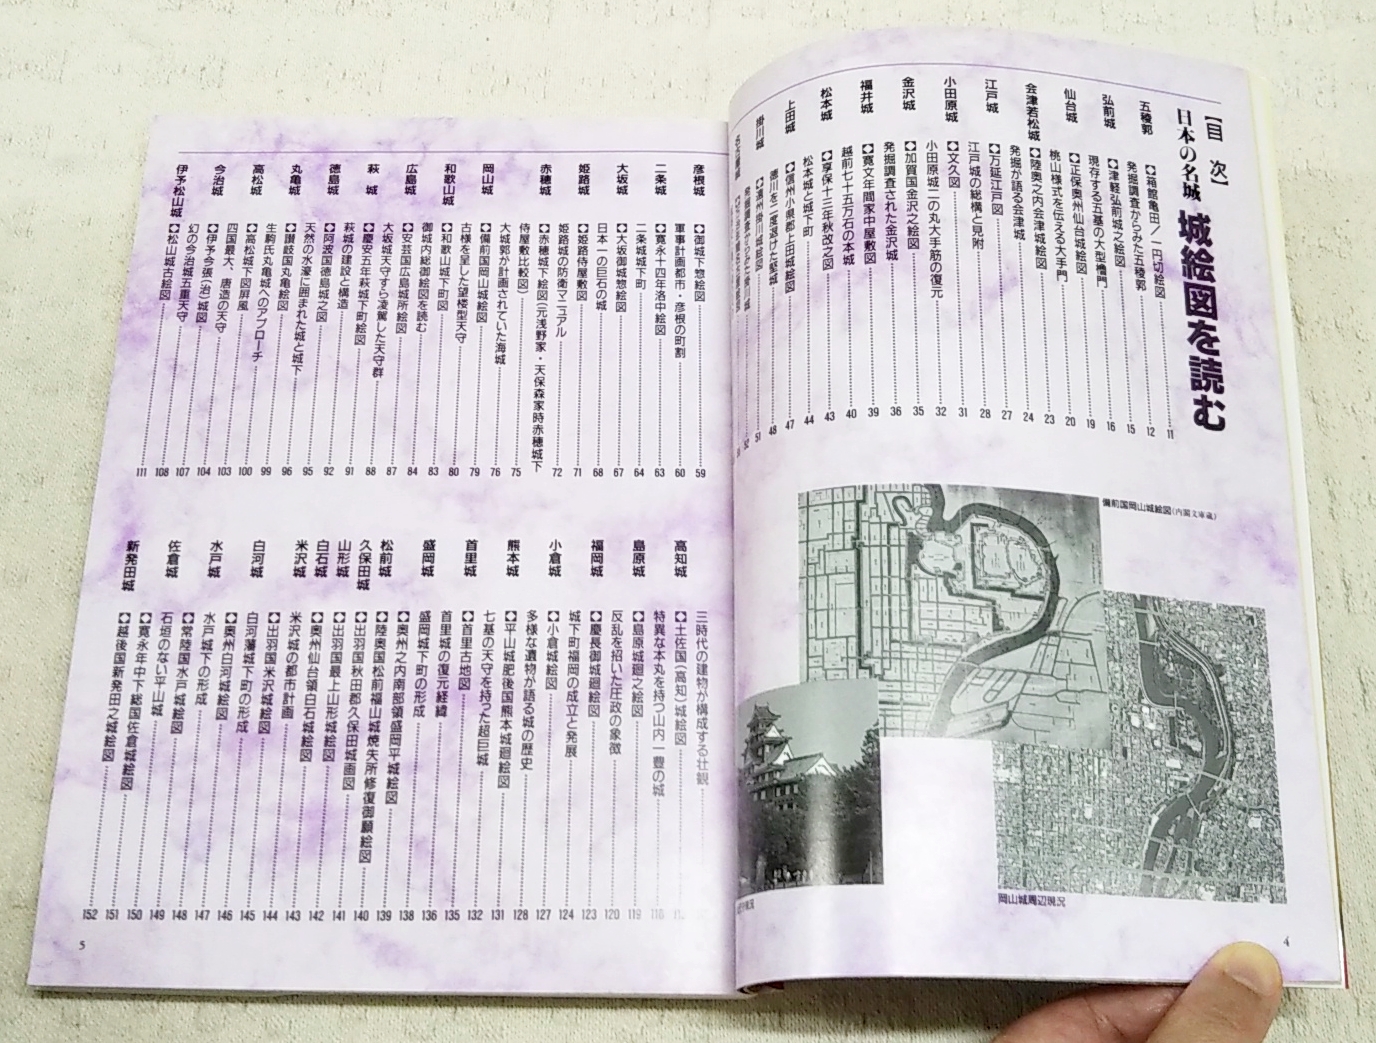 【目 次】
日本の名城 城絵図を読む
五稜郭
【◇】箱館亀田／一円切絵図 11
発掘調査からみた五稜郭 12
弘前城
【◇】津軽弘前城之絵図 15
現存する五基の大型櫓門 16
仙台城
【◇】正保奥州仙台城絵図 19
桃山様式を伝える大手門 20
会津若松城
【◇】陸奥之内会津城絵図 23
発掘が語る会津城 24
江戸城
【◇】万延江戸図 27
江戸城の総構と見附 28
小田原城
【◇】文久図 31
小田原城二の丸大手筋の復元 32
金沢城
【◇】加賀国金沢之絵図 35
発掘調査された金沢城 36
福井城
【◇】寛文年間家中屋敷図 39
越前七十五万石の本城 40
松本城
【◇】享保十三年秋改之図 43
松本城と城下町 44
上田城
【◇】信州小県郡上田城絵図 47
徳川を二度退けた堅城 48
掛川城
【◇】遠州掛川城絵図 51
52
備前国岡山城絵図(内閣文庫蔵)
岡山城周辺現況
4
彦根城
【◇】御城下惣絵図 59
軍事計画都市・彦根の町割 60
二条城
【◇】寛永十四年洛中絵図 63
二条城城下町 64
大坂城
【◇】大坂御城惣絵図 67
日本一の巨石の城 68
姫路城
【◇】姫路侍屋敷図 71
姫路城の防衛マニュアル 72
赤穂城
【◇】赤穂城下絵図(元浅野家・天保森家時赤穂城下
侍屋敷比較図) 75
大城郭が計画されていた海城 76
岡山城
【◇】備前国岡山城絵図 79
古様を呈した望楼型天守 80
和歌山城
【◇】和歌山城下町図 83
御城内総御絵図を読む 84
広島城
【◇】安芸国広島城所絵図 87
大坂城天守すら凌駕した天守群 88
萩 城
【◇】慶安五年萩城下町絵図 91
萩城の建設と構造 92
徳島城
【◇】阿波国徳島城之図 95
天然の水濠に囲まれた城と城下 96
丸亀城
【◇】讃岐国丸亀絵図 99
生駒氏丸亀城へのアプローチ 100
高松城
【◇】高松城下図屏風 103
四国最大、唐造の天守 104
今治城
【◇】伊予今張(治)城図 107
幻の今治城五重天守 108
伊予松山城
【◇】松山城古絵図 111
三時代の建物が構成する壮観
高知城
【◇】土佐国(高知)城絵図
特異な本丸を持つ山内一豊の城 116
島原城
【◇】島原城廻之絵図 119
反乱を招いた圧政の象徴 120
福岡城
【◇】慶長御城廻絵図 123
城下町福岡の成立と発展 124
小倉城
【◇】小倉城絵図 127
多様な遺物が語る城の歴史 128
熊本城
【◇】平山城肥後国熊本城廻絵図 131
七基の天守を持った超巨城 132
首里城
【◇】首里古地図 135
首里城の復元経緯 136
盛岡城
盛岡城下町の形成
【◇】奥州之内南部領盛岡平城絵図 138
松前城
【◇】陸奥国松前福山城焼失所修復御願絵図 139
久保田城
【◇】出羽国秋田郡久保田城画図 140
山形城
【◇】出羽国最上山形城絵図 141
白石城
【◇】奥州仙台領白石城絵図 142
米沢城
米沢城の都市計画 143
【◇】出羽国米沢城絵図 144
白河城
白河藩城下町の形成 145
【◇】奥州白河城絵図 146
水戸城
水戸城下の形成 147
【◇】常陸国水戸城絵図 148
佐倉城
石垣のない平山城 149
【◇】寛永年中下総国佐倉城絵図 150
新発田城
【◇】越後国新発田之城絵図 151
152
5